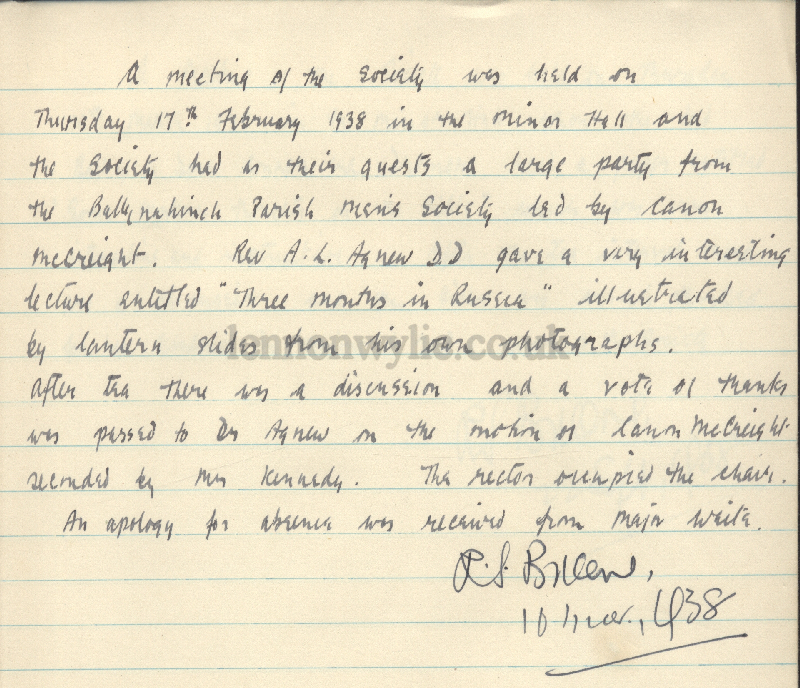 A meeting of the Society was held on
Thursday 17th February 1938 in the Minor Hall and
the Society had as their guests a large party from
the Ballynahinch Parish Men's Society led by Canon
McCreight. Rev A. L. Agnew D.D gave a very interesting
lecture entitled "Three months in Russia" illustrated
by lantern slides from his own photographs.
lennonwylie.co.uk
After tea there was a discussion and a vote of thanks
was passed to Dr Agnew on the motion of Canon McCreight
seconded by Mr Kennedy. The rector occupied the chair.
An apology for absence was received from Major Waite.
R.S. Breene,
10 Mar., 1938